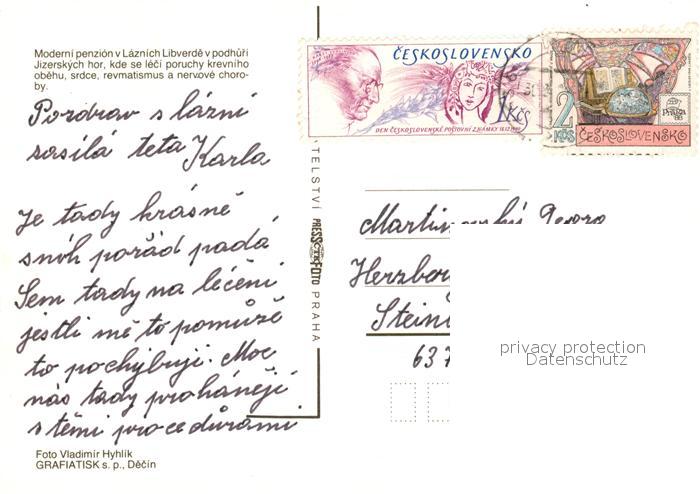 Moderní penzión v Lázních Libverdě v podhůří
Jizerských hor, kde se léčí poruchy krevního
oběhu, srdce, revmatismus a nervové choro-
by.
Pozdrav s lázní
sasílá teta Karla
Je tady krásně
sněh pořád padá
Sem tady na léčení
jestli mě to pomůžě
to pochybuji. Moc
nás tady prohánějí
s těmi procedůrami
Foto Vladimír Hyhlík
GRAFIATISK s. p., Děčín
ČESKOSLOVENSKO
1 Kčs
DEN ČESKOSLOVENSKÉ POŠTOVNÍ ZNÁMKY 18.12.
2 KČS
PRAHA 88
ČESKOSLOVENSKO
PRESSFOTO PRAHA
Herzber
Stein
637
privacy protection
Datenschutz